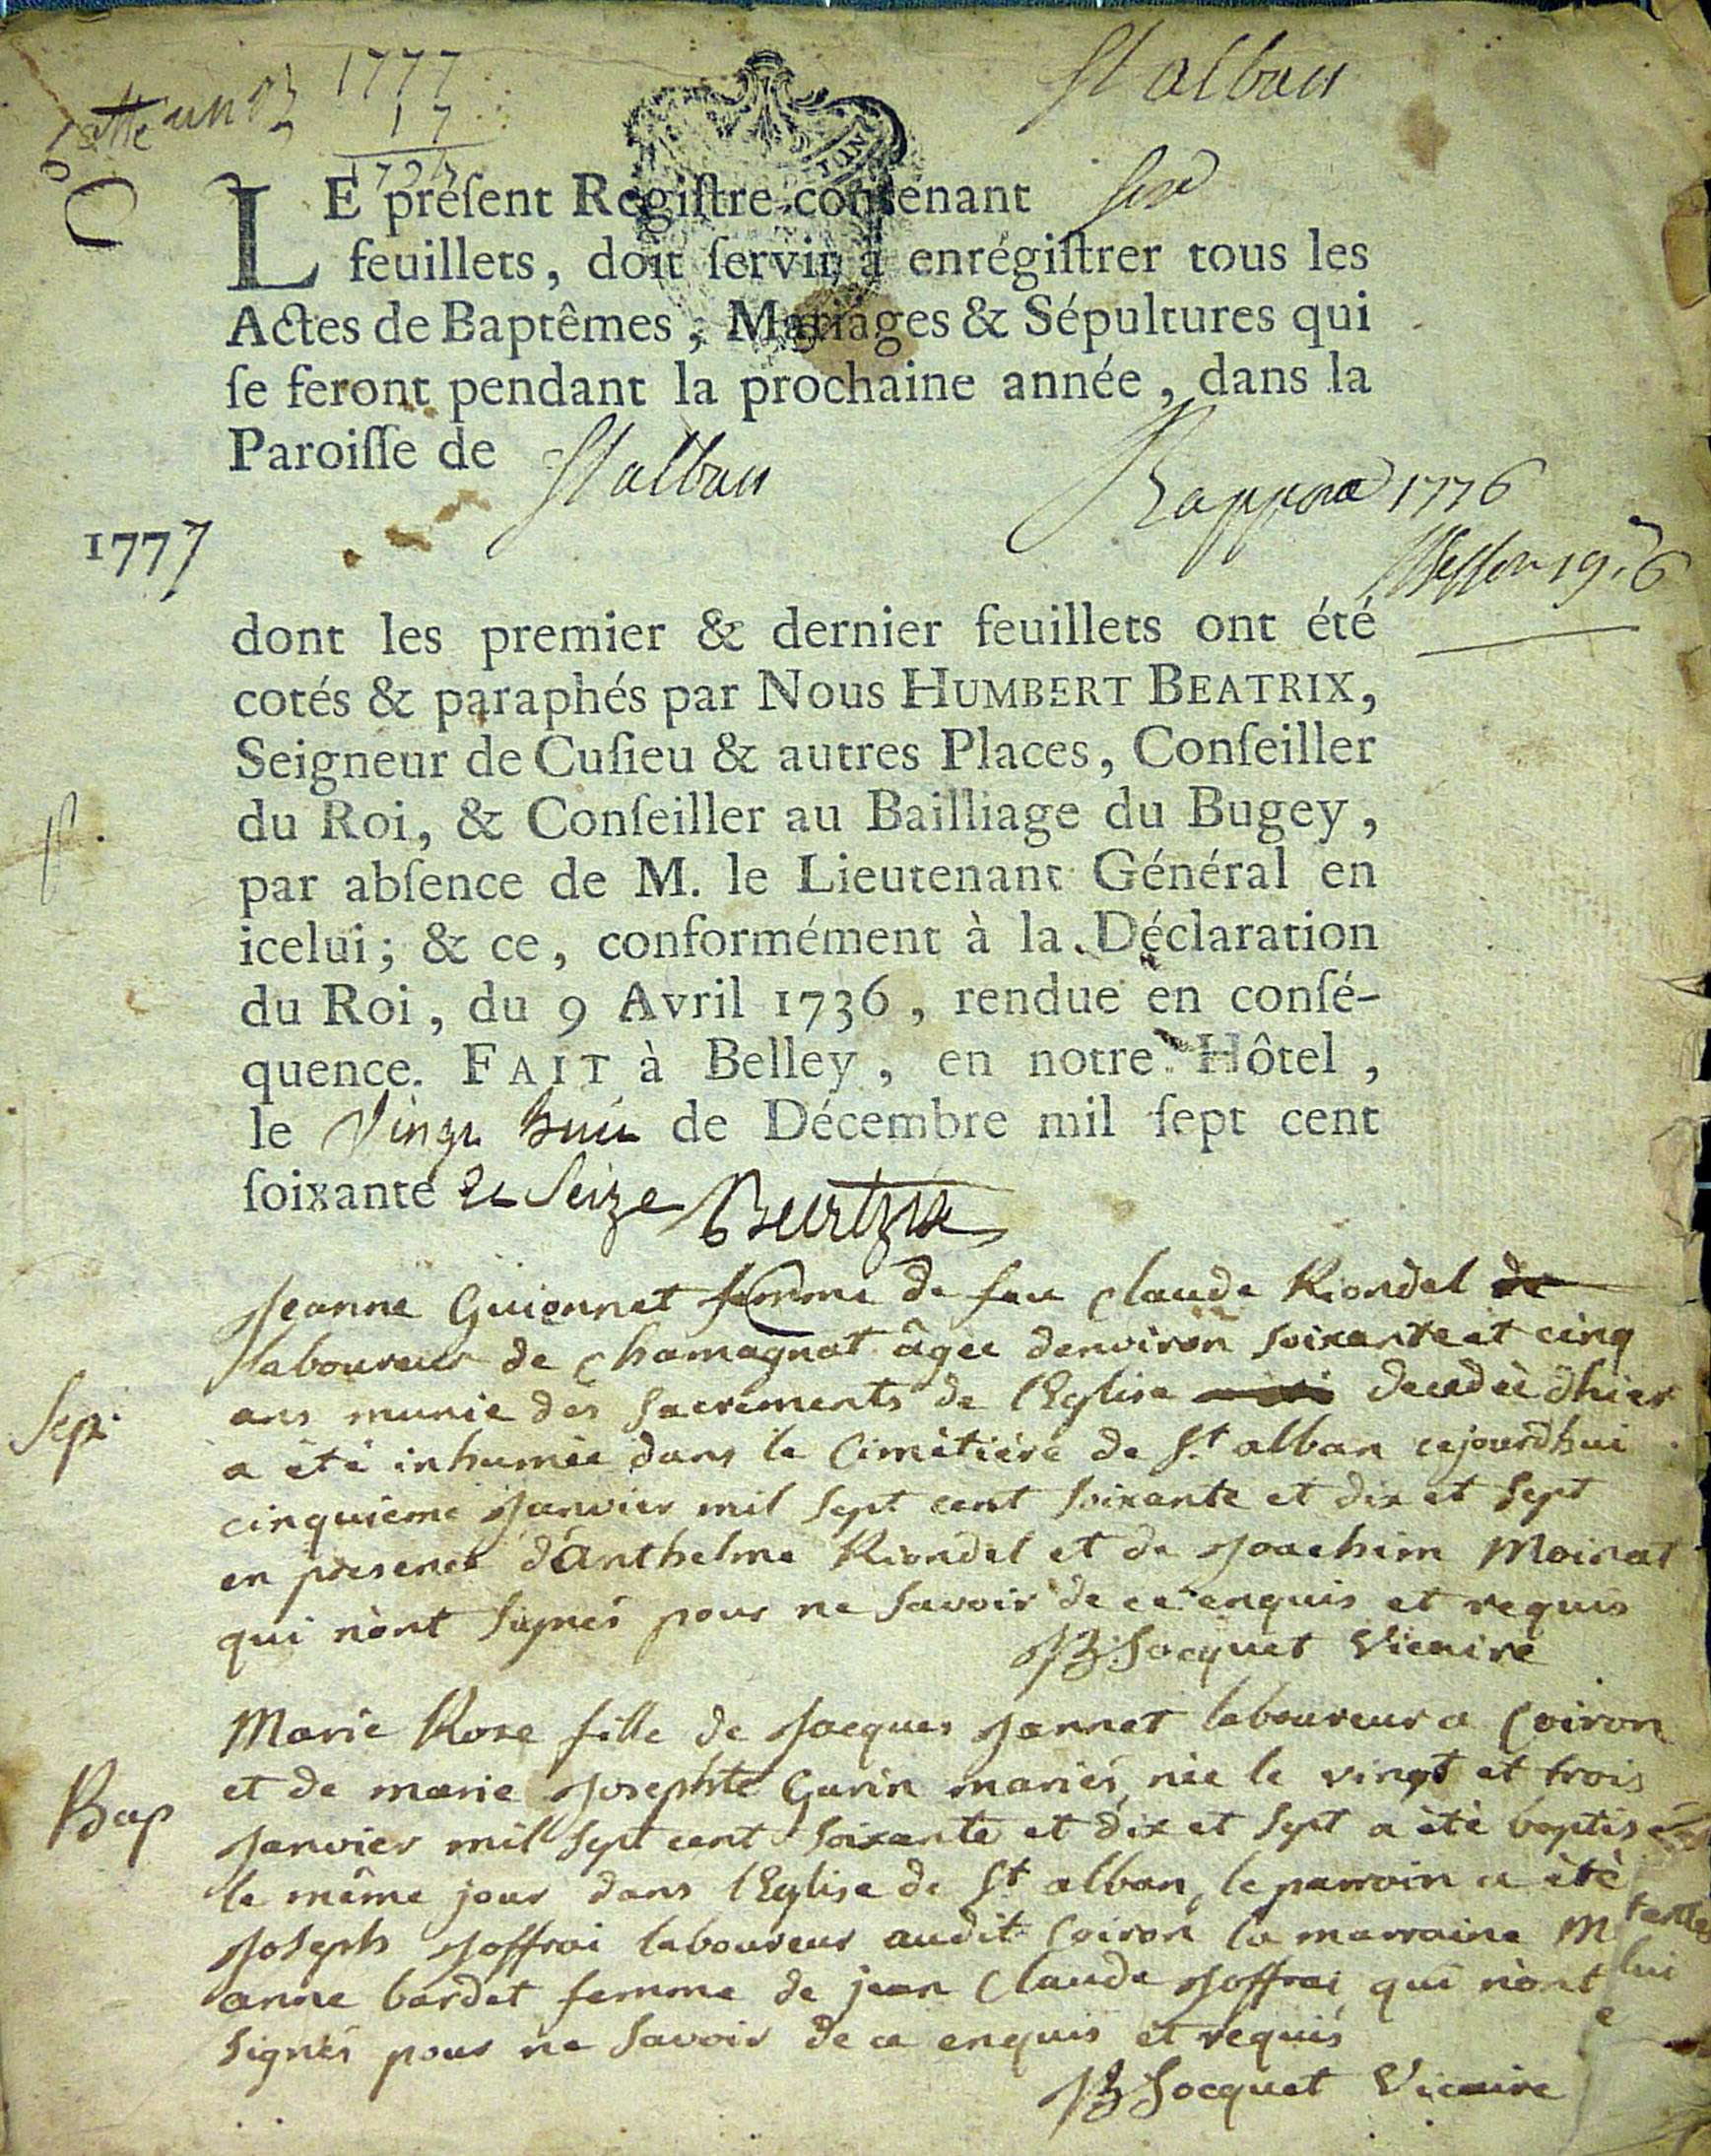 1777
17
St alban
LE préſent Regiſtre contenant six
feuillets, doit ſervir à enrégiſtrer tous les
Actes de Baptêmes, Mariages & Sépultures qui
ſe feront pendant la prochaine année, dans la
Paroiſſe de St alban
1777
1776
dont les premier & dernier feuillets ont été
cotés & paraphés par Nous HUMBERT BEATRIX,
Seigneur de Cuſieu & autres Places, Conſeiller
du Roi, & Conſeiller au Bailliage du Bugey,
par abſence de M. le Lieutenant Général en
icelui; & ce, conformément à la Déclaration
du Roi, du 9 Avril 1736, rendue en conſé-
quence. FAIT à Belley, en notre Hôtel,
le Vingt huit de Décembre mil ſept cent
ſoixante et Seize Beatrix
Jeanne Guionnet femme de feu Claude Riondel de
laboureur de Chamagnat âgée denviron soixante et cinq
Sep.
ans munie des Sacrements de lEglise decedèe d'hier
a étè inhumée dans le Cimètiére de St alban cejourdhui
cinquieme Janvier mil Sept cent soixante et dix et Sept
en presence d'Anthelme Riondel et de Joachim Moinat
qui n'ont signés pour ne Savoir de ce enquis et requis
JB. Socquet Vicaire
Marie Rose fille de Jacques Jannet laboureur a Coiron
et de marie Josephte Garin mariés, née le vingt et trois
Bap
Janvier mil Sept cent soixante et dix et Sept a étè baptisé
le même jour dans lEglise de St alban, le parroin a étè
Joseph Joffrai laboureur audit Coiron la marraine M
anne bardet femme de jean Claude Joffrai qui n'ont
signés pour ne Savoir de ce enquis et requis
JB Socquet Vicaire